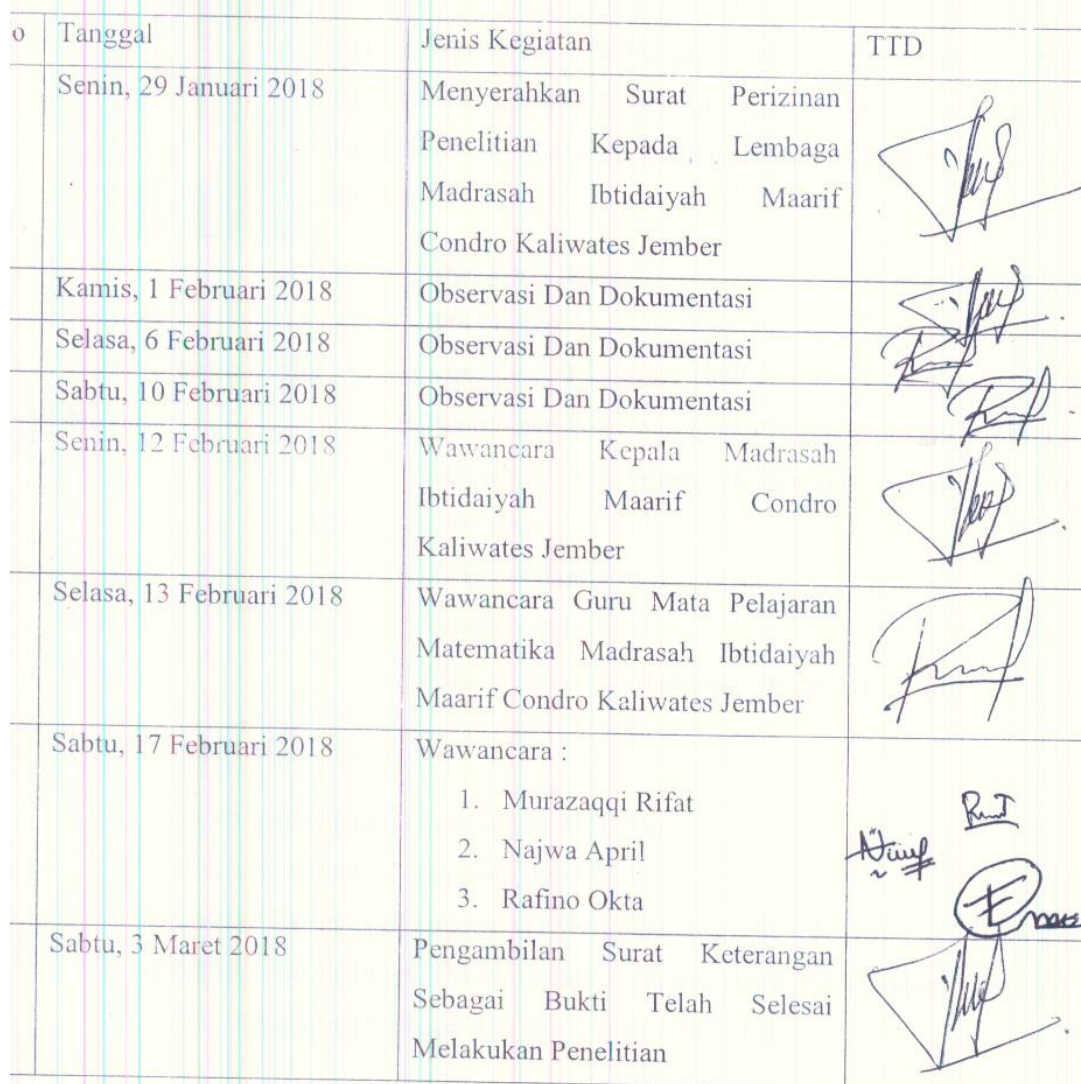 o Tanggal Jenis Kegiatan TTD
Senin, 29 Januari 2018 Menyerahkan Surat Perizinan
Penelitian Kepada Lembaga
Madrasah Ibtidaiyah Maarif
Condro Kaliwates Jember
Kamis, 1 Februari 2018 Observasi Dan Dokumentasi
Selasa, 6 Februari 2018 Observasi Dan Dokumentasi
Sabtu, 10 Februari 2018 Observasi Dan Dokumentasi
Senin, 12 Februari 2018 Wawancara Kepala Madrasah
Ibtidaiyah Maarif Condro
Kaliwates Jember
Selasa, 13 Februari 2018 Wawancara Guru Mata Pelajaran
Matematika Madrasah Ibtidaiyah
Maarif Condro Kaliwates Jember
Sabtu, 17 Februari 2018 Wawancara :
1. Murazaqqi Rifat
2. Najwa April
3. Rafino Okta
Sabtu, 3 Maret 2018 Pengambilan Surat Keterangan
Sebagai Bukti Telah Selesai
Melakukan Penelitian